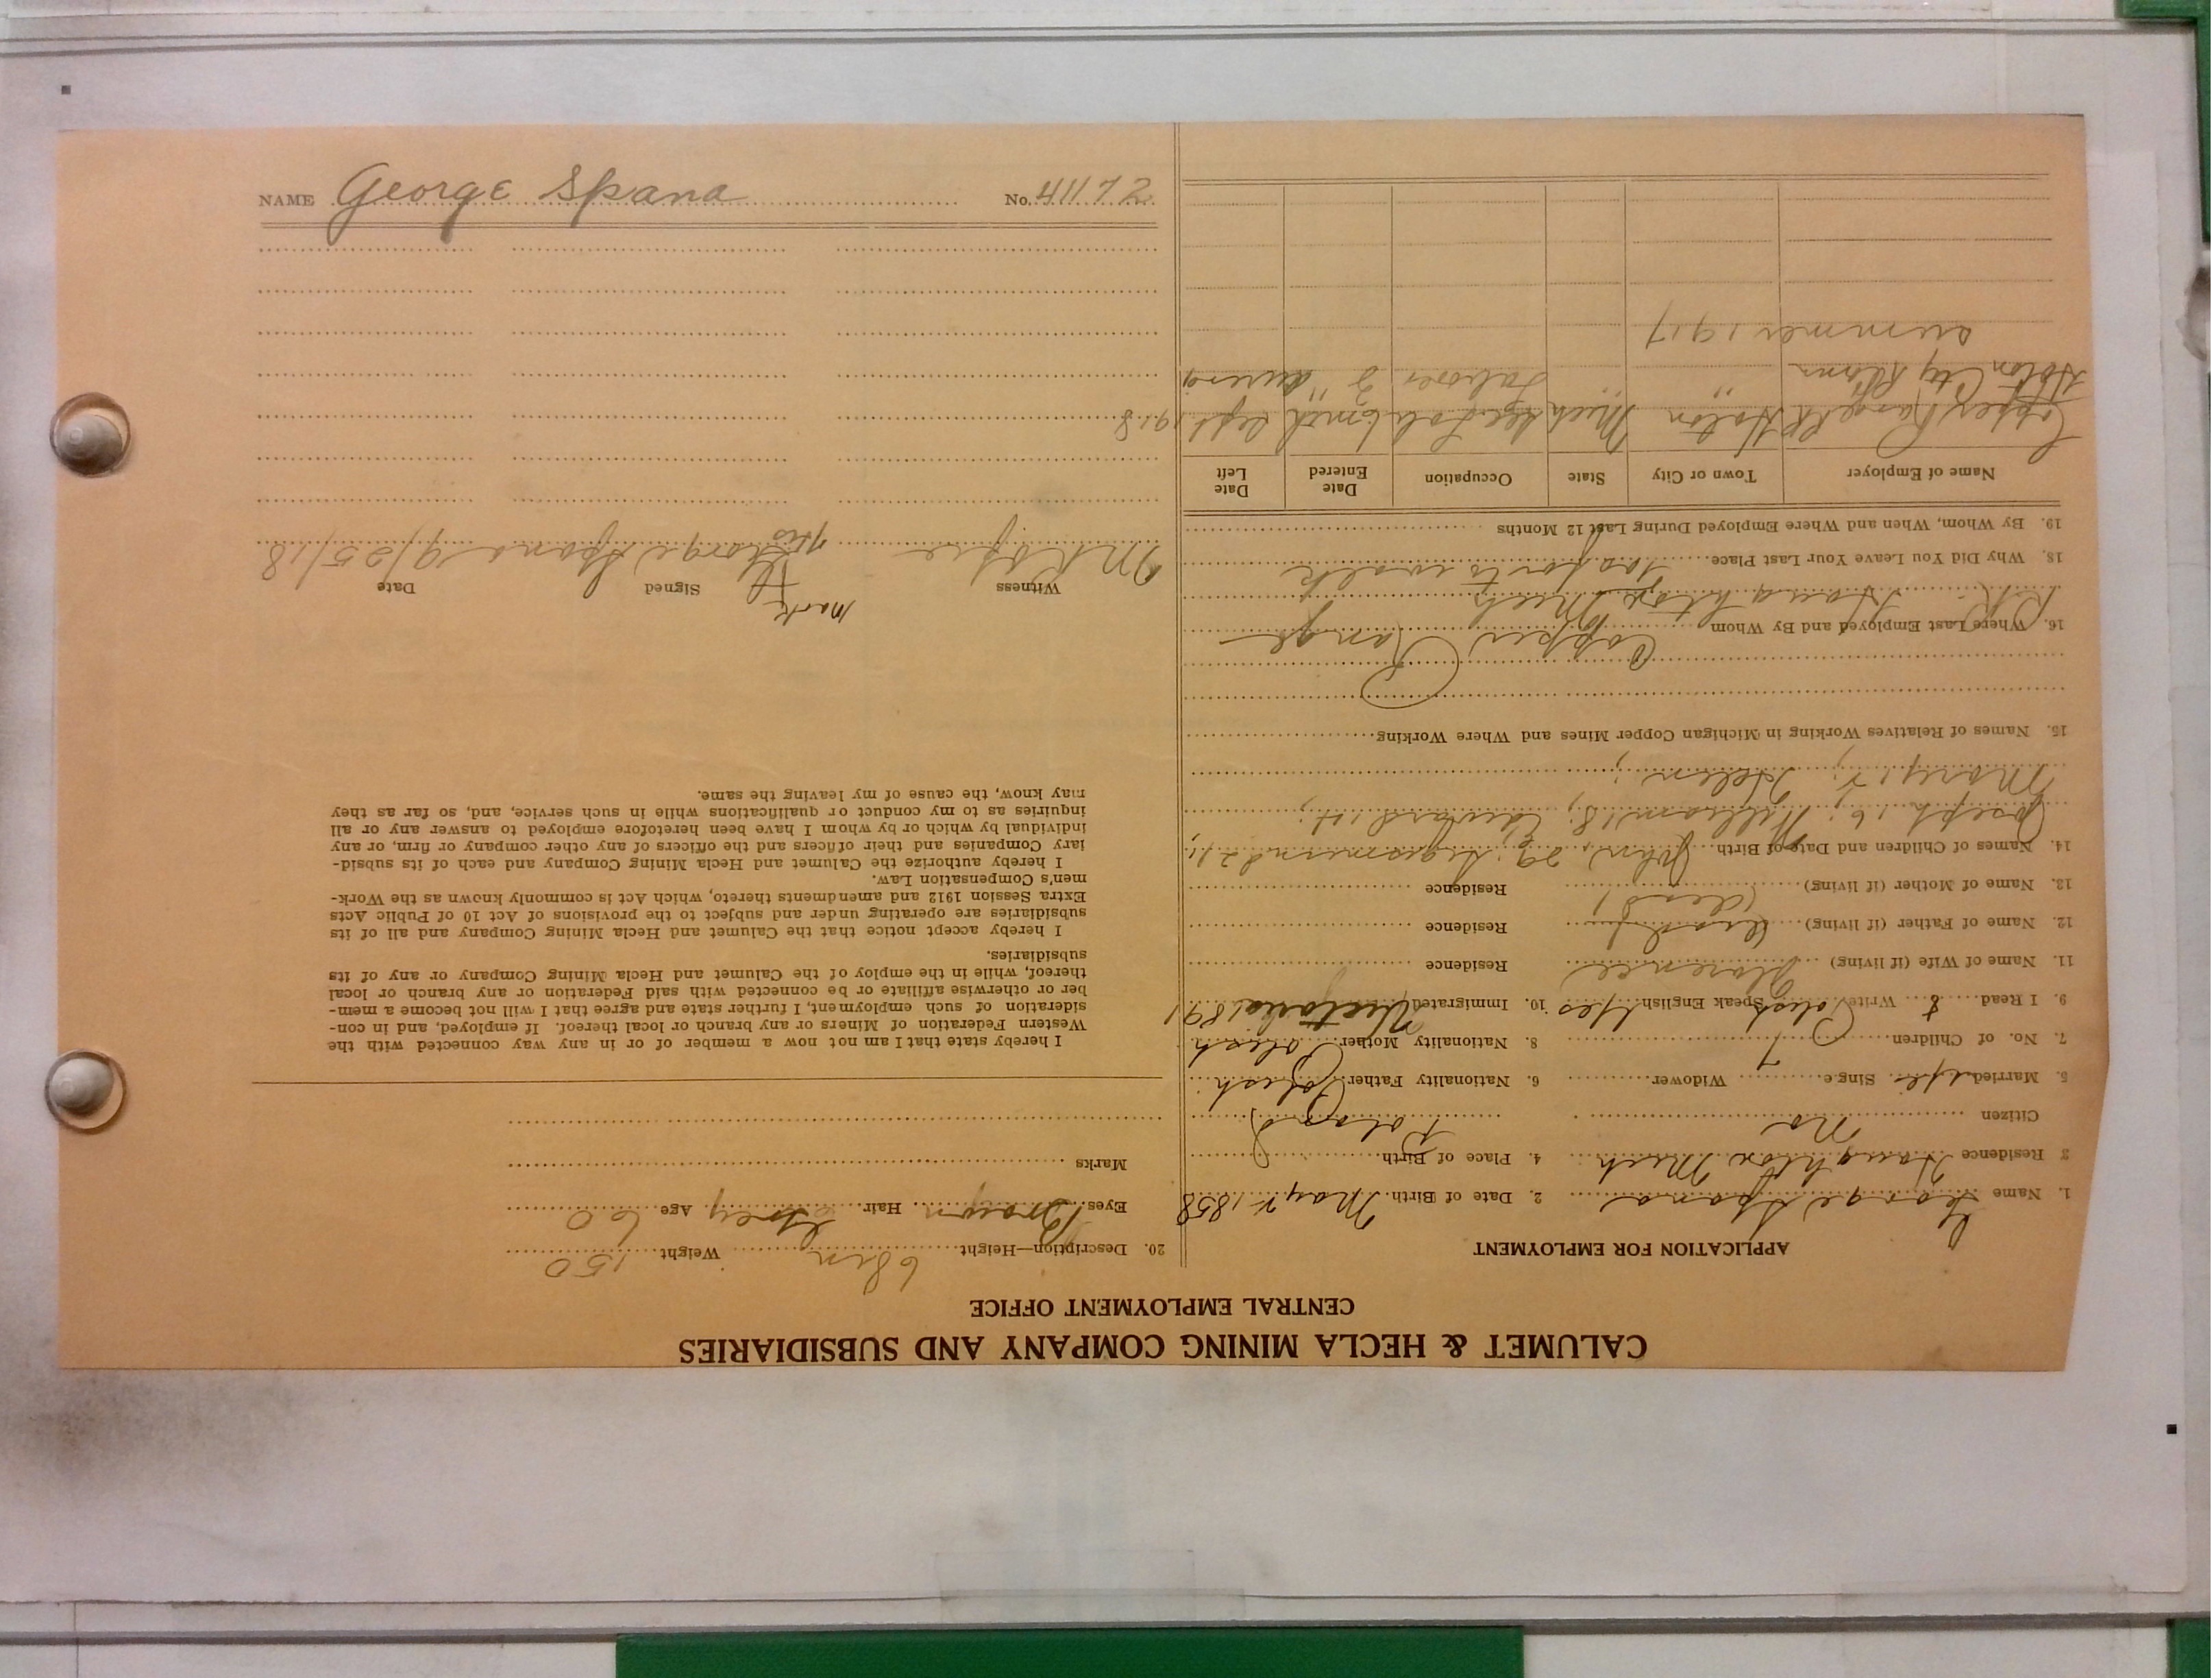 NAME George Spana No. 41172
CALUMET & HECLA MINING COMPANY AND SUBSIDIARIES
CENTRAL EMPLOYMENT OFFICE
APPLICATION FOR EMPLOYMENT
1. Name George Spana 2. Date of Birth May 1858
3 Residence Houghton Mich 4. Place of Birth Poland
Citizen no
5. Married yes Single Widower 6. Nationality Father Polish
7. No. of Children 7 8. Nationality Mother Polish
9. I Read & Write Polish Speak English yes 10. Immigrated 1891
11. Name of Wife (if living) Florence Residence
12. Name of Father (if living) (dead) Residence
13. Name of Mother (if living) (dead) Residence
14. Names of Children and Date of Birth John, 29; Sigismund 21;
Joseph 16; William 18; Edward 14;
Mary, 7; Helen;
15. Names of Relatives Working in Michigan Copper Mines and Where Working
16. Where Last Employed and By Whom Copper Range
R.R. Houghton Mich
18. Why Did You Leave Your Last Place too far to walk
19. By Whom, When and Where Employed During Last 12 Months
Name of Employer Town or City State Occupation Date Entered Date Left
Copper Range RR Hoton Mich Lab 6 mth Sept 1918
Hoton City " " Laborer 3 " during
summer 1917
20. Description—Height 68 in Weight 150
Eyes Brown Hair Grey Age 60
Marks
I hereby state that I am not now a member of or in any way connected with the
Western Federation of Miners or any branch or local thereof. If employed, and in con-
sideration of such employment, I further state and agree that I will not become a mem-
ber or otherwise affiliate or be connected with said Federation or any branch or local
thereof, while in the employ of the Calumet and Hecla Mining Company or any of its
subsidiaries.
I hereby accept notice that the Calumet and Hecla Mining Company and all of its
subsidiaries are operating under and subject to the provisions of Act 10 of Public Acts
Extra Session 1912 and amendments thereto, which Act is commonly known as the Work-
men's Compensation Law.
I hereby authorize the Calumet and Hecla Mining Company and each of its subsid-
iary Companies and their officers and the officers of any other company or firm, or any
individual by which or by whom I have been heretofore employed to answer any or all
inquiries as to my conduct or qualifications while in such service, and, so far as they
may know, the cause of my leaving the same.
mark
Witness Signed Date
his George Spana 9/25/18